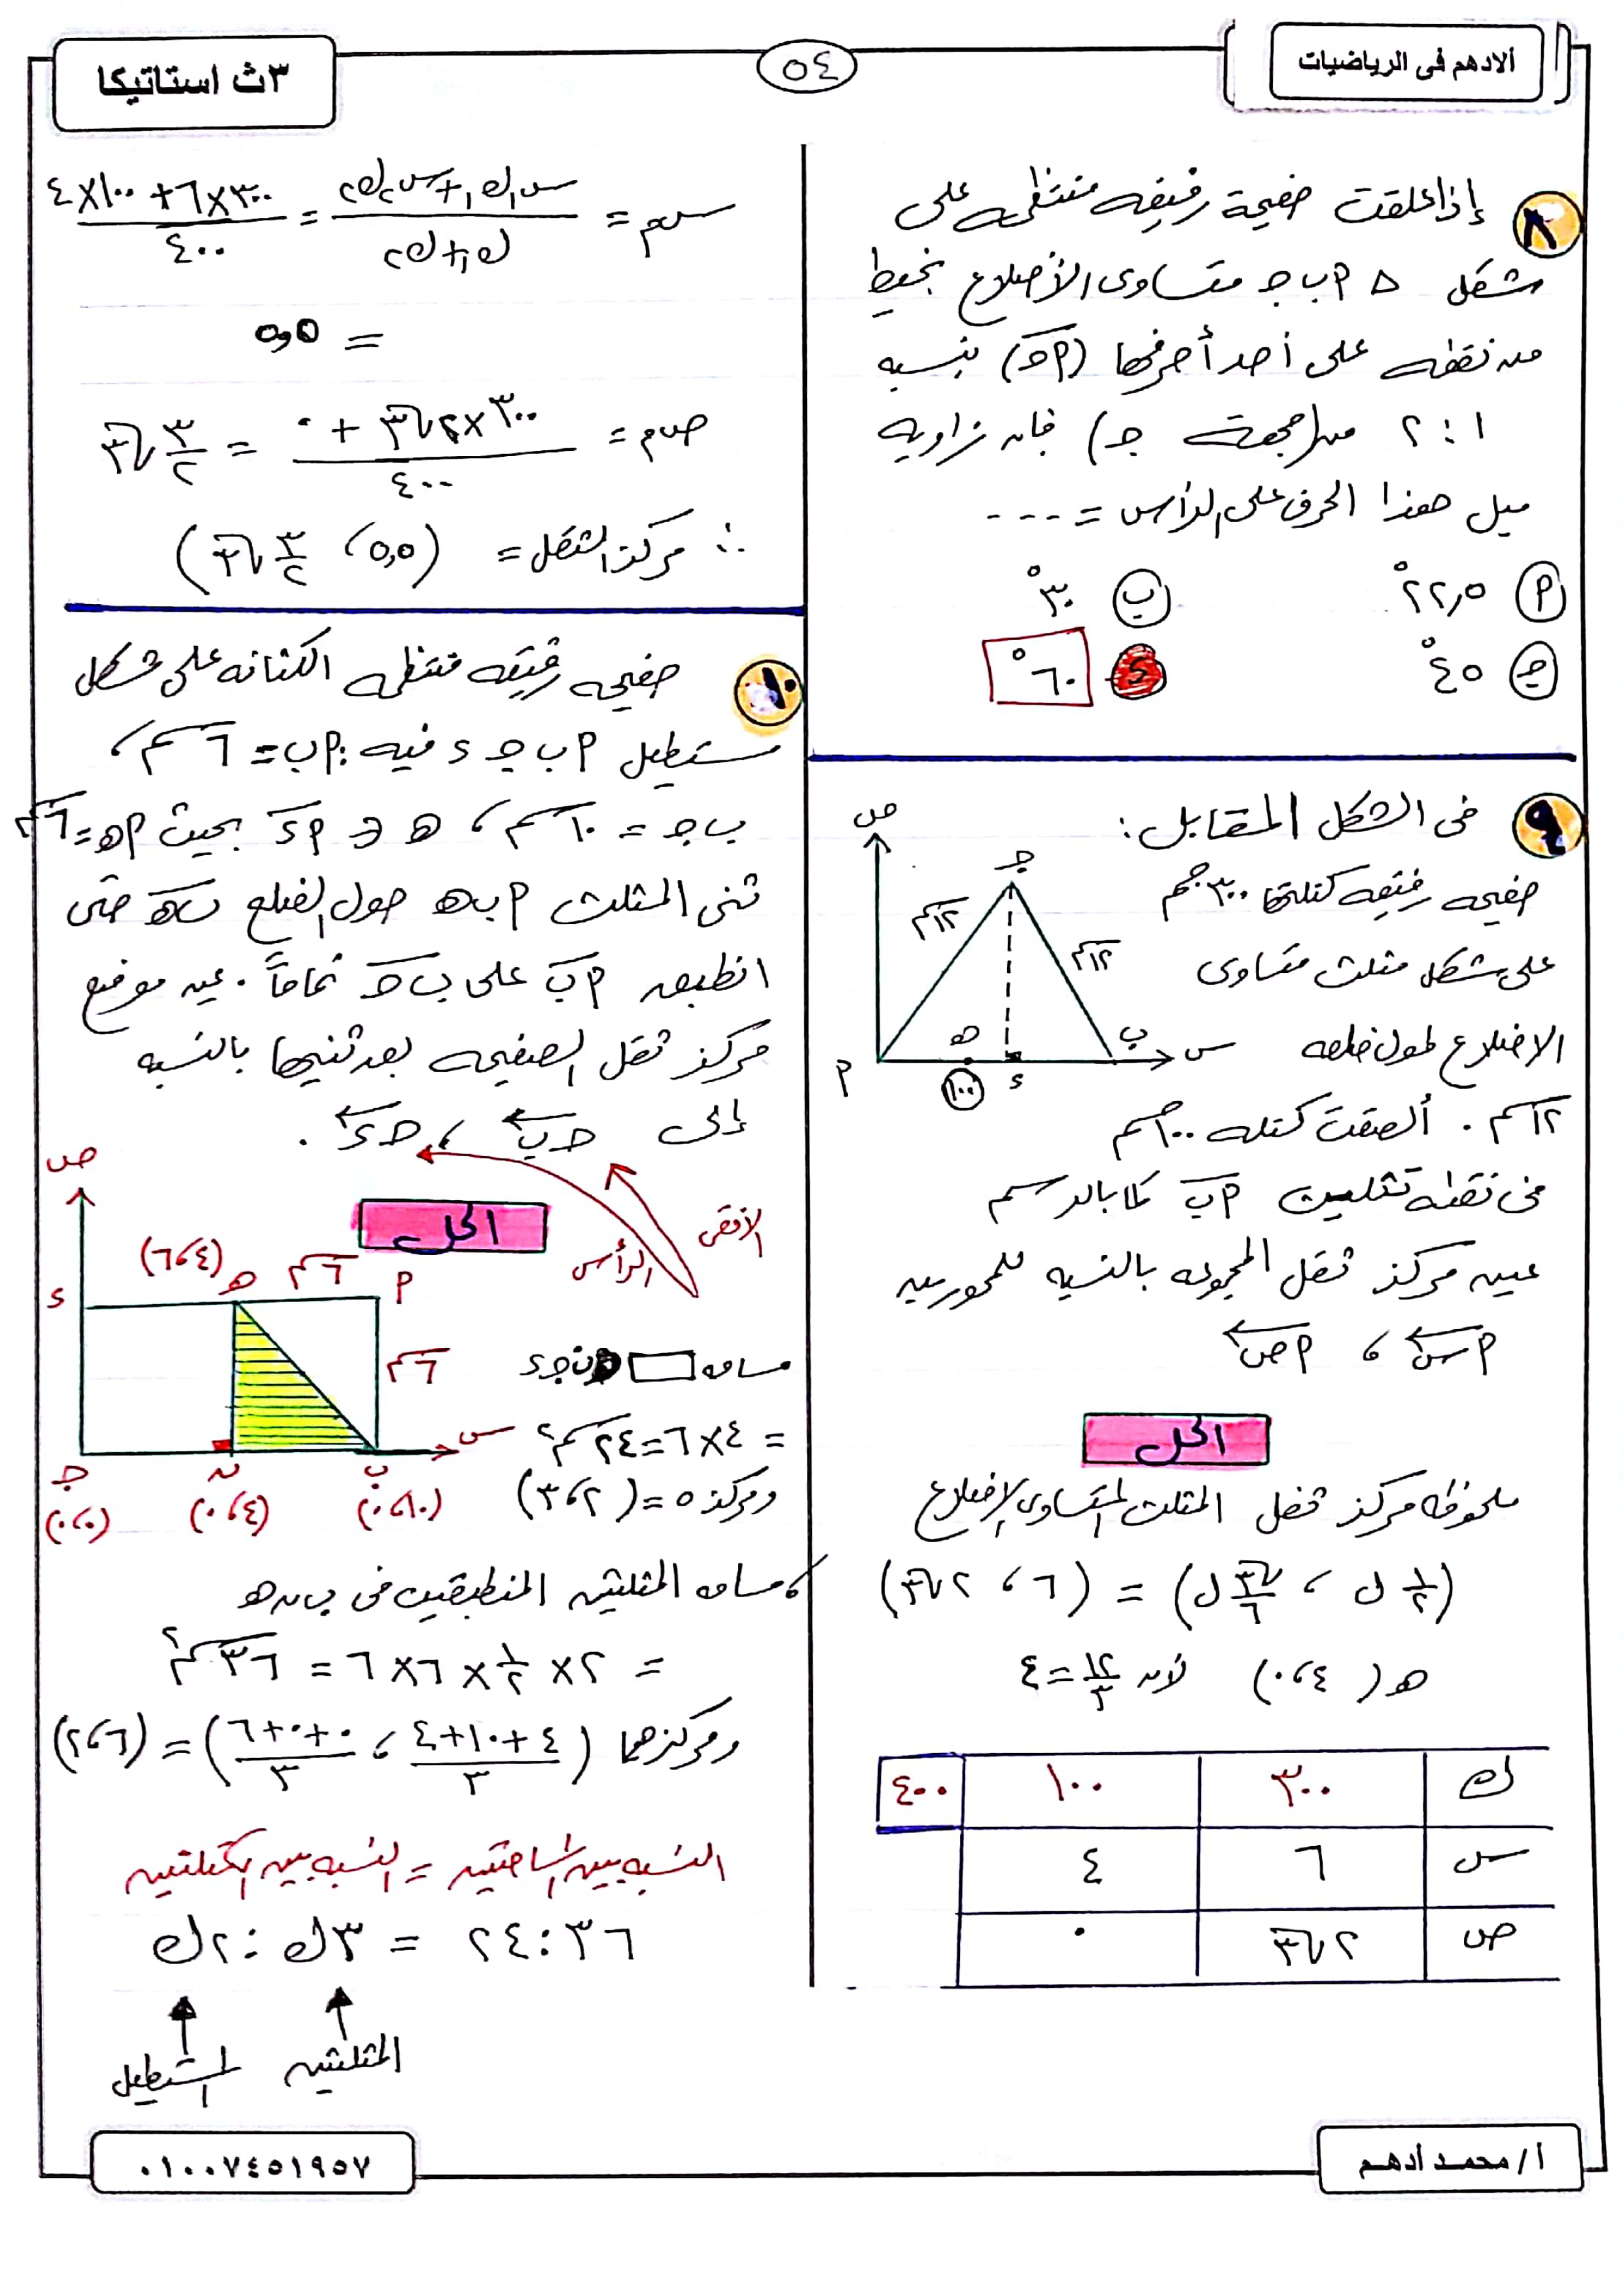 ألادهم فى الرياضيات
٥٤
٣ث استاتيكا
٨ إذا علقت صفيحة رقيقه منتظمه على
شكل △ ٢ ب جـ متساوى الأضلاع بخيط
من نقطه على أحد أحرفها (٢جـ) بنسبه
١ : ٢ من (جهة جـ) فإن زاوية
ميل هذا الحرف على الرأس = ----
٢ ٢٢,٥°
ب ٣٠°
جـ ٤٥°
د ٦٠°
٩ فى الشكل المقابل :
صفيحه رقيقه كتلتها ٣٠٠ جم
على شكل مثلث متساوى
الاضلاع طول ضلعه
١٢ سم . ألصقت كتله ١٠٠ جم
فى نقطة تثليث ٢ب كما بالرسم
عين مركز ثقل المجموعه بالنسبه للمحورين
٢س ، ٢ص
ص
جـ
١٢سم
١٢سم
٢
هـ
د
ب
س
١٠٠
الحل
ملحوظه مركز ثقل المثلث المتساوى الاضلاع
(١/٢ ل ، √٣/٦ ل) = (٦ ، ٢√٣)
هـ (٤ ، ٠) لأن ١٢/٣ = ٤
ك ٣٠٠ ١٠٠ ٤٠٠
س ٦ ٤
ص ٢√٣ ٠
سم = (س١ك١ + س٢ك٢)/(ك١ + ك٢) = (٣٠٠×٦ + ١٠٠×٤)/٤٠٠
= ٥,٥
صم = (٣٠٠×٢√٣ + ٠)/٤٠٠ = ٣/٢ √٣
∴ مركز الثقل = (٥,٥ ، ٣/٢ √٣)
١٠ صفيحه رقيقه منتظمه الكثافه على شكل
مستطيل ٢ ب جـ د فيه : ٢ب = ٦سم ،
ب جـ = ١٠سم ، هـ ∈ ٢د بحيث ٢هـ = ٦سم
ثنى المثلث ٢ ب هـ حول الضلع ب هـ حتى
انطبق ٢ب على ب جـ تماماً . عين موضع
مركز ثقل الصفيحه بعد ثنيها بالنسبه
إلى جـ ب ، جـ د .
الأفقى
الرأسى
الحل
ص
(٤ ، ٦)
د
هـ
٦سم
٢
٦سم
س
جـ
ن
ب
(٠ ، ٠)
(٤ ، ٠)
(١٠ ، ٠)
مساحه ▭ هـ ن جـ د
= ٤ × ٦ = ٢٤سم٢
ومركزه = (٢ ، ٣)
، مساحه المثلثين المنطبقين فى ب ن هـ
= ٢ × ١/٢ × ٦ × ٦ = ٣٦سم٢
ومركزهما ((٤+١٠+٤)/٣ ، (٠+٠+٦)/٣) = (٦ ، ٢)
النسبه بين المساحتين = النسبه بين الكتلتين
٣٦ : ٢٤ = ٣ك : ٢ك
المثلثين
المستطيل
أ / محمـد أدهـم
٠١٠٠٧٤٥١٩٥٧